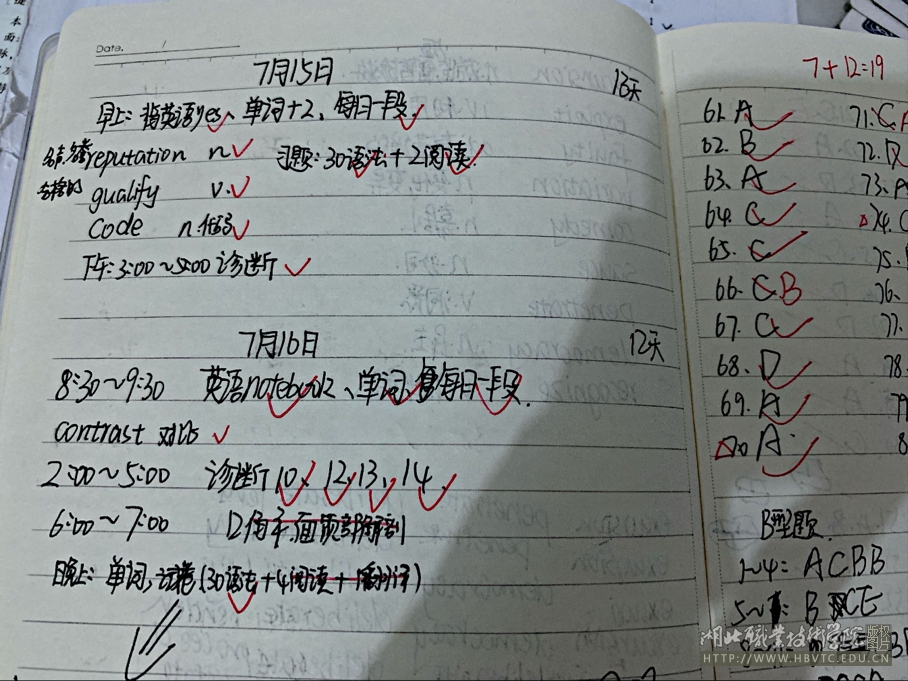 Date.
7月15日 13天
早上: 摘英语yes、单词+2、每日一段
reputation n 习题: 30语法+2阅读
qualify v.
code n.代码
下午: 3:00~5:00 诊断
7月16日 12天
8:30~9:30 英语notebook、单词、每日一段.
contrast 对比
2:00~5:00 诊断10、12、13、14、
6:00~7:00 口角率.面颈部解剖
晚上: 单词, 试卷(30语法+4阅读+1翻译)
7+12=19
61. A
62. B
63. A
64. C
65. C
66. C B
67. C
68. D
69. A
70 A
71: C
72. D
73. A
74. C
75.
76.
77.
78.
79
8
B型题
1~4: ACBB
湖北职业技术学院 版权图片
HTTP://WWW.HBVTC.EDU.CN